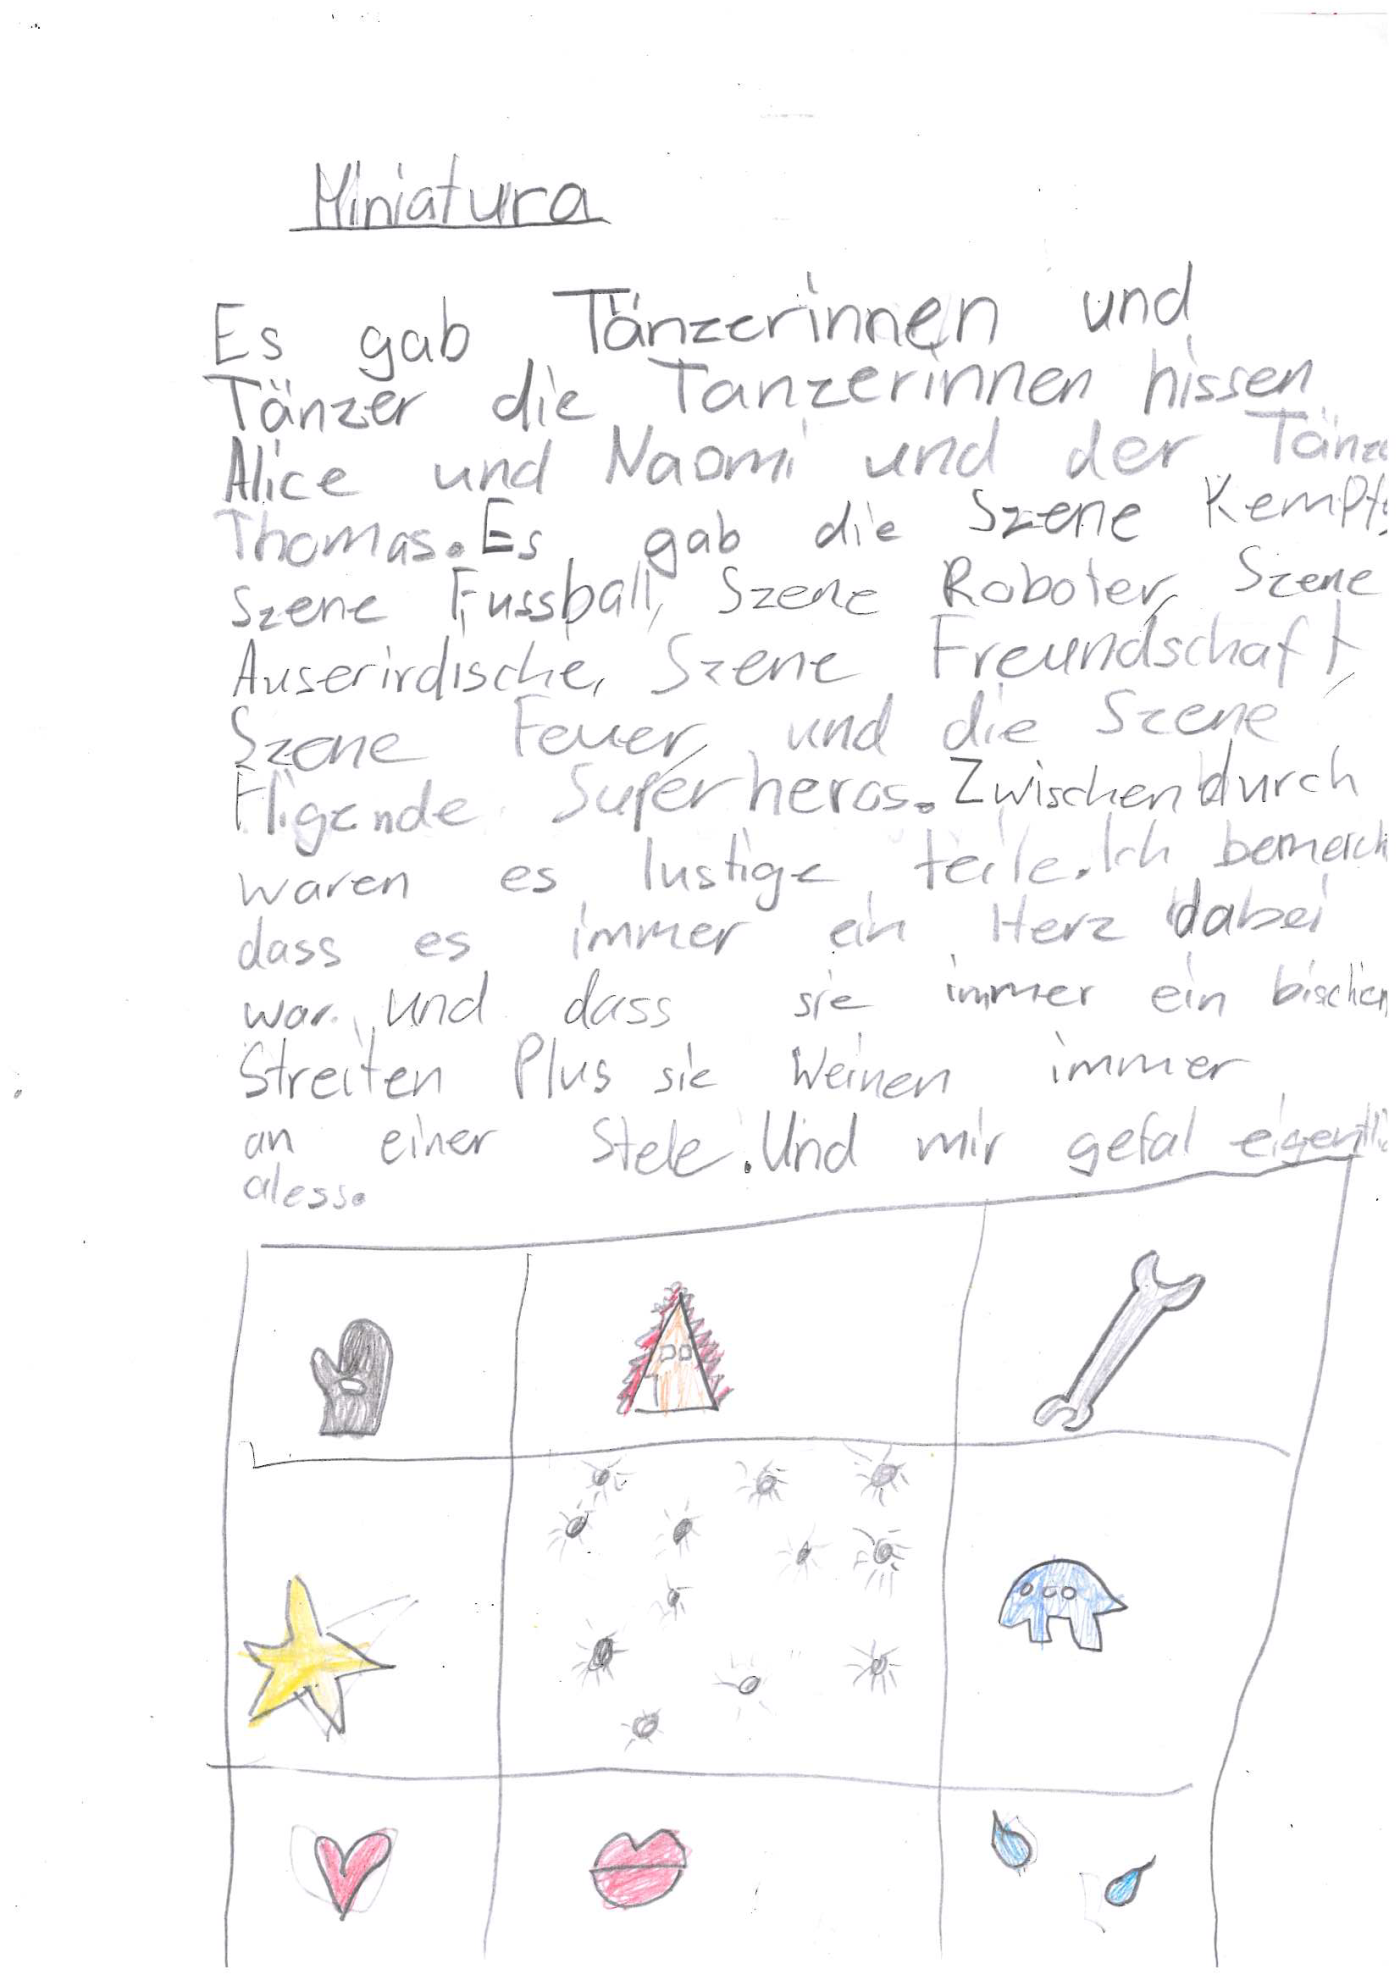 Miniatura
Es gab Tänzerinnen und
Tänzer die Tanzerinnen hissen
Alice und Naomi und der Tänze
Thomas. Es gab die Szene Kempfe,
Szene Fussball, Szene Roboter, Szene
Auserirdische, Szene Freundschaft,
Szene Feuer, und die Szene
Fligende Superheros. Zwischendurch
waren es lustige teile. Ich bemerck
dass es immer ein Herz dabei
war und dass sie immer ein bischen
Streiten Plus sie Weinen immer
an einer Stele. Und mir gefal eigentlic
aless.